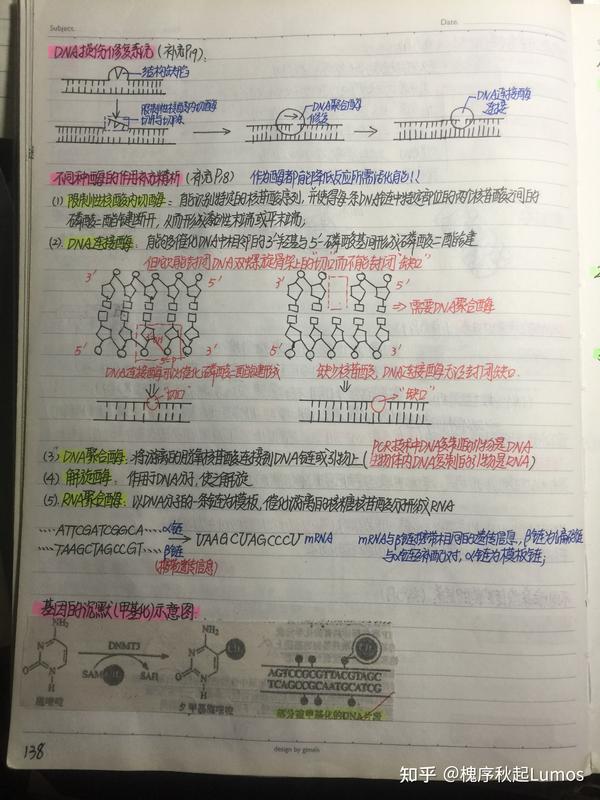 Subject.
Date.
DNA损伤修复系统（补充P19）：
结构缺陷
限制性核酸内切酶
切开与切除
DNA聚合酶
修复
DNA连接酶
连接
不同种酶的作用方式辨析（补充P18） 作为酶都能降低反应所需活化能！！
(1) 限制性核酸内切酶：能识别特定的核苷酸序列，并使得每条DNA链中特定部位的两个核苷酸之间的
磷酸二酯键断开，从而形成黏性末端或平末端；
(2). DNA连接酶：能够催化DNA中相邻的3'-羟基与5'-磷酸基间形成磷酸二酯键
但仅限封闭DNA双螺旋骨架上的“切口”而不能封闭“缺口”
3' 5' 3' 5'
→需要DNA聚合酶
5' 3' 5' 3'
DNA连接酶可以催化磷酸二酯键形成
缺少核苷酸，DNA连接酶无法封闭缺口.
“切口”
“缺口”
(3) DNA聚合酶：将游离的脱氧核苷酸连接到DNA链或引物上（PCR技术中DNA复制的引物是DNA
生物体内DNA复制的引物是RNA）
(4). 解旋酶：作用于DNA分子，使之解旋
(5). RNA聚合酶：以DNA分子的一条链为模板，催化游离的核糖核苷酸分子形成RNA
····ATTCGATCGGCA····α链
····TAAGCTAGCCGT····β链
(携带遗传信息)
→UAAGCUAGCCCU mRNA
mRNA与β链携带相同的遗传信息，β链为编码链
与α链互补配对，α链为模板链；
基因的沉默(甲基化)示意图：
NH₂
DNMT3
SAM
SAH
胞嘧啶
NH₂
5'甲基胞嘧啶
AGTCCGCGTTACGTAGC
TCAGCCGCAATGCATCG
部分被甲基化的DNA片段
138
design by gimels
知乎 @槐序秋起Lumos